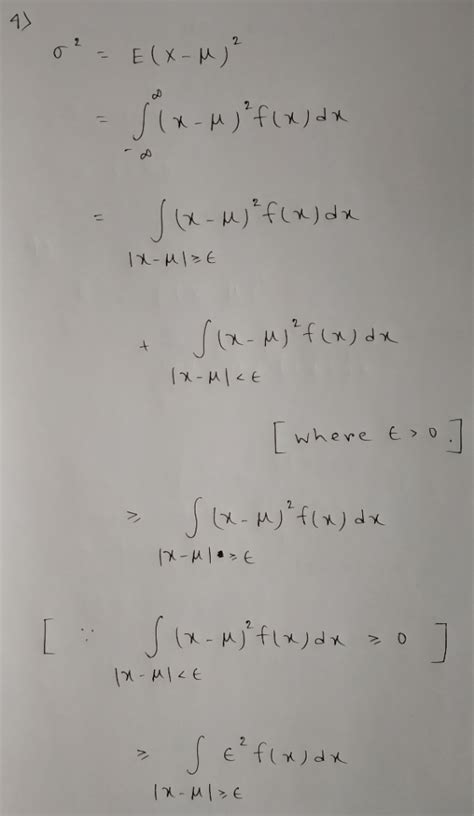 4)
σ² = E(x-μ)²
= ∫_{-∞}^{∞} (x-μ)² f(x) dx
= ∫_{|x-μ|≥ε} (x-μ)² f(x) dx
+ ∫_{|x-μ|<ε} (x-μ)² f(x) dx
[where ε>0.]
≥ ∫_{|x-μ|≥ε} (x-μ)² f(x) dx
[∵ ∫_{|x-μ|<ε} (x-μ)² f(x) dx ≥ 0]
≥ ∫_{|x-μ|≥ε} ε² f(x) dx